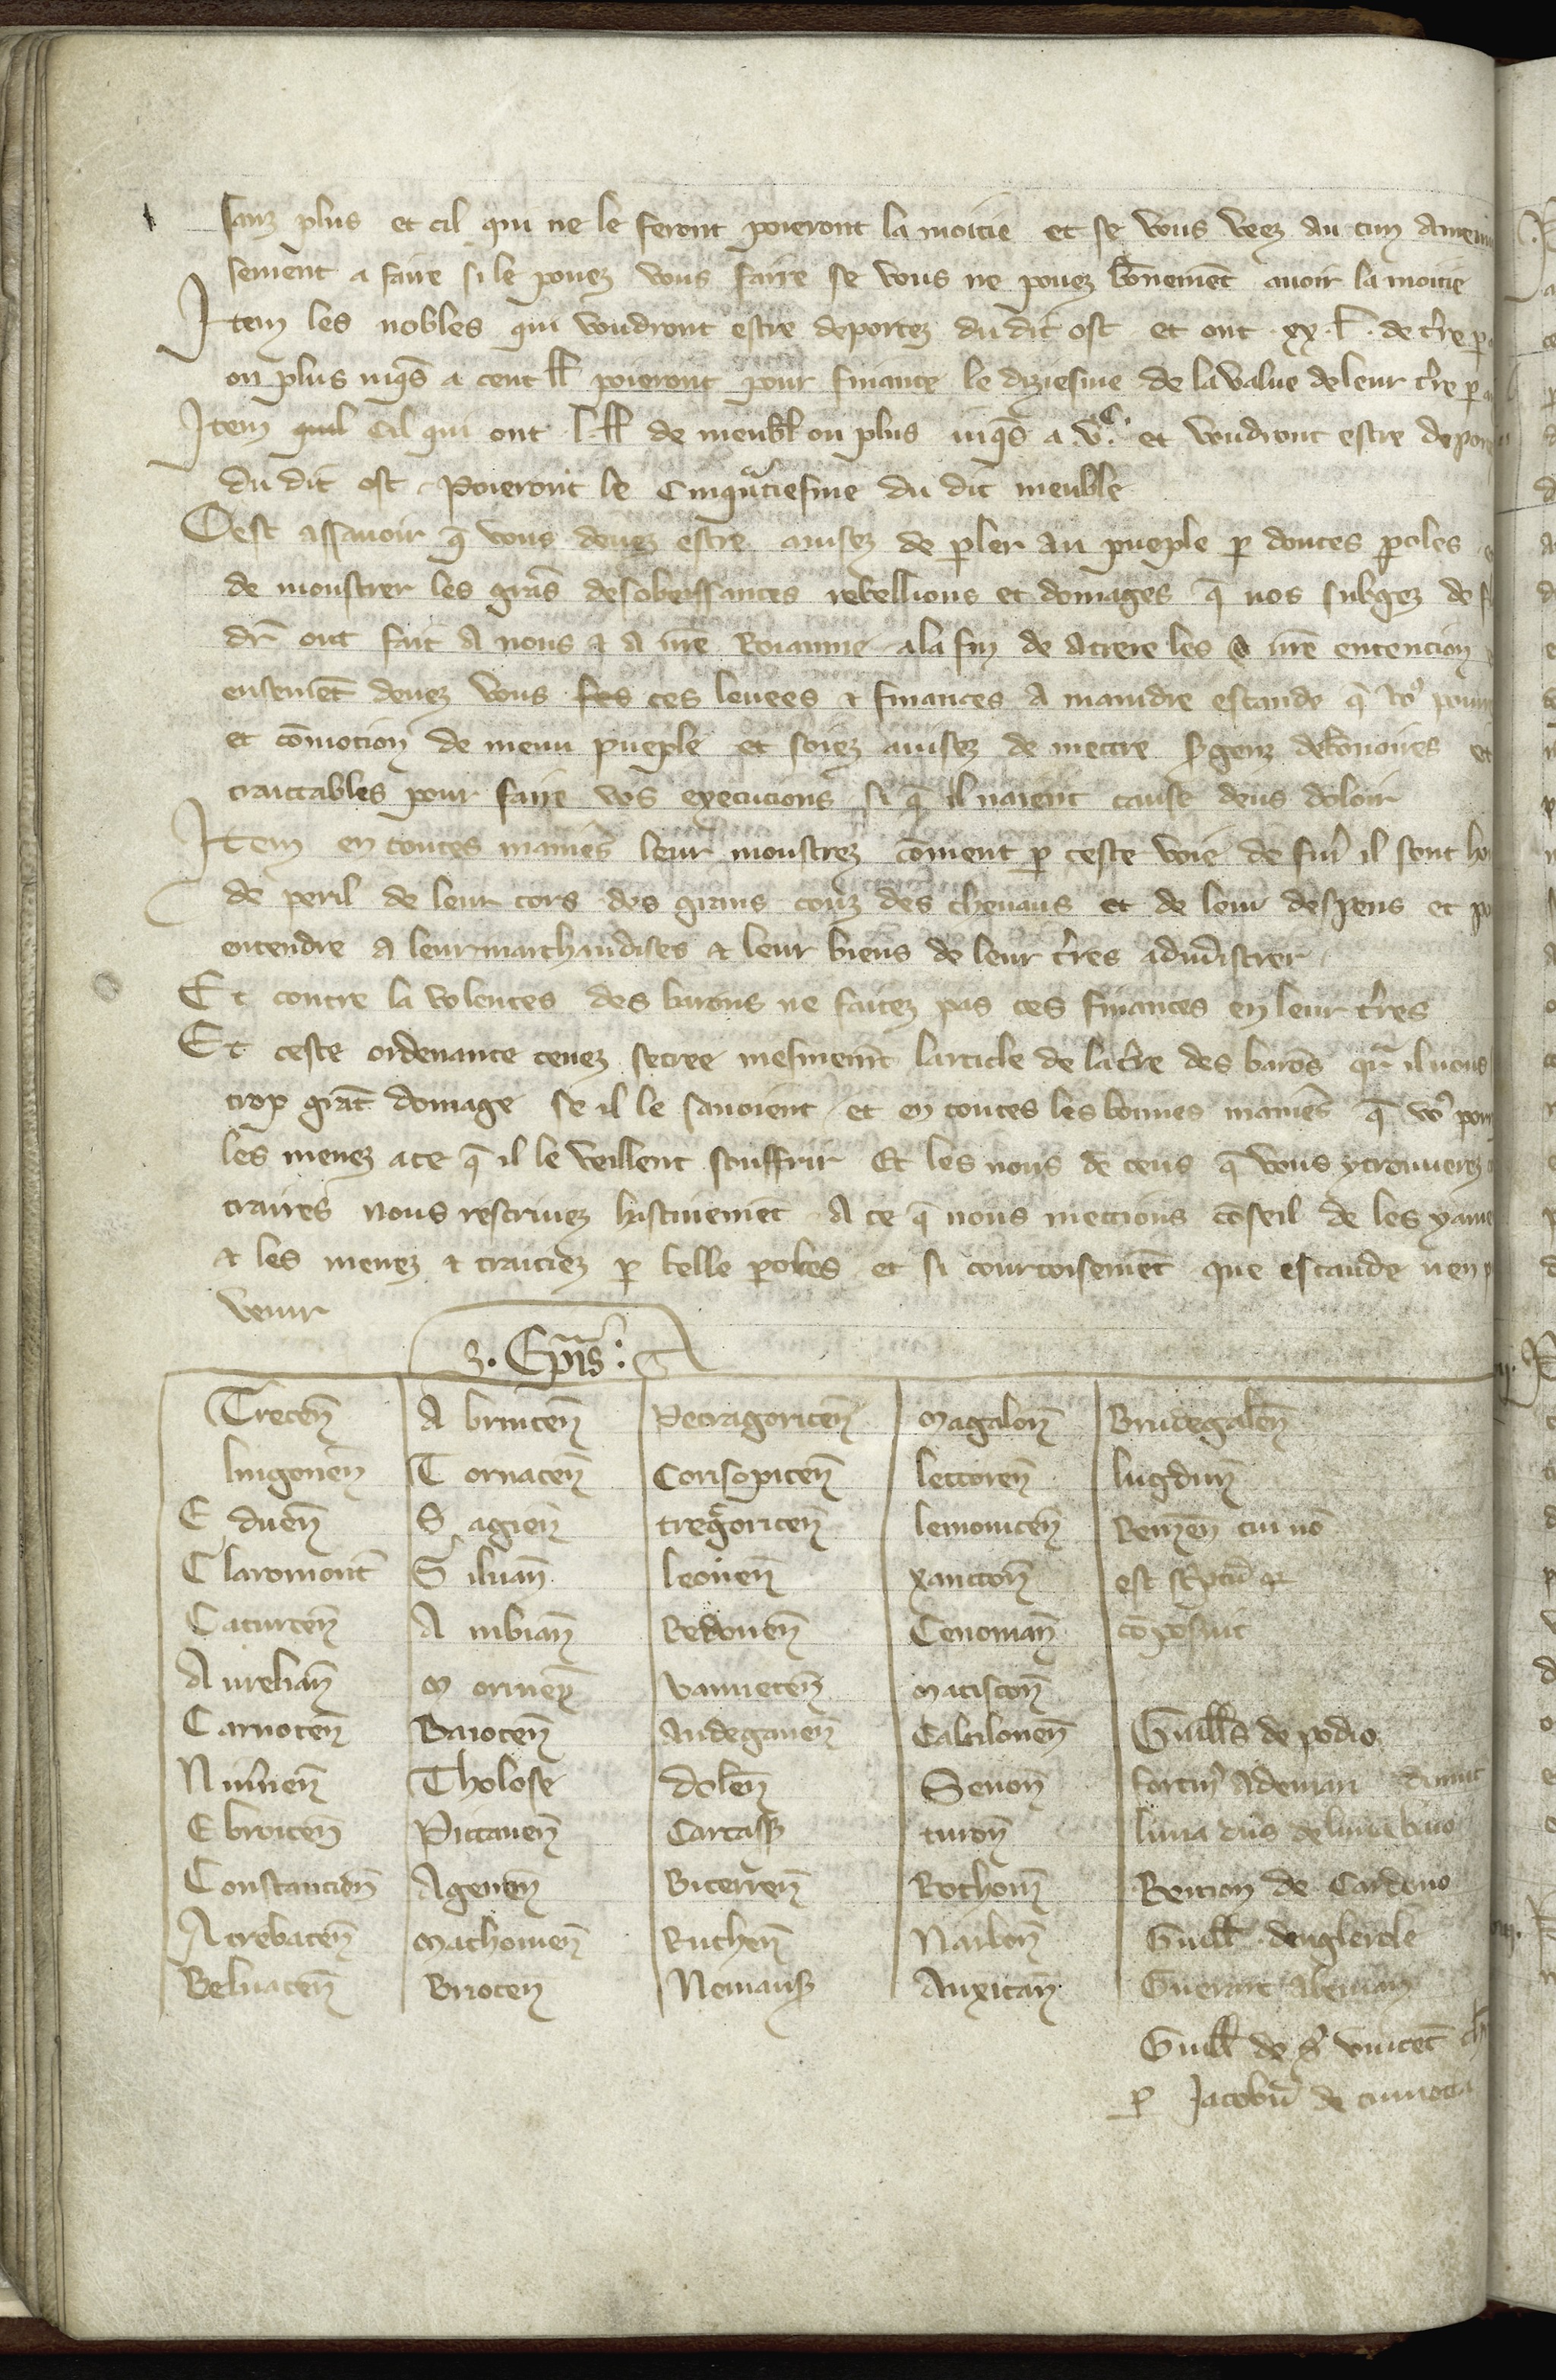 sanz plus et cil qui ne le feront poieront la moitie et se vous veez au cun amenui
sement a faire si le pouez vous faire se vous ne pouez bonnemēt auoir la moitie
Item les nobles qui voudront estre deportez du dit ost et ont .xx. l. de t're
ou plus iusq̄s a cent ll poieront pour finance le diziesme de la value de leur t're
Item quil cil qui ont l. ll de meubl ou plus iusq̄s a v.c et voudront estre depor
du dit ost poieront le cinquātiesme du dit meuble
Cest assauoir q̄ vous deuez estre auisez de p̱ler au pueple p̱ douces p̱oles
de monstrer les grās desobeissances rebellions et domages q̄ nos subgez de
dr̄ ont fait a nous ⁊ a nr̄e Roiaume a la fin de atrere les a nr̄e entencion
ensemēt deuez vous fes ces leuees ⁊ finances a maindre escande q̄ vo9 pourr
et cōmocion de menu pueple et soiez auisez de mettre s'genz debonnoires et
traictables pour faire vos execucions si q̄ il naient cause deus doloir
Item en toutes manieres leur monstrez cōment p̱ ceste voie de fin' il sont ho
de peril de leur cors des grans couz des cheuaus et de leur despens et po
entendre a leur marchandises ⁊ leur biens de leur t'res administrer
Et contre la volentes des barons ne faitez pas ces finances en leur t'res
Et ceste ordenance tenez secree mesmemēt larticle de la t're des barōs qr il uous
trop grāt domage se il le sauoient et en toutes les bonnes manieres q̄ vo9 pour
les menez a ce q̄ il le veillent souffrir Et les nons de ceus q̄ vous y trouuerez
traires nous rescriuez hastiuemēt A ce q̄ nous mettions cōseil de les
⁊ les menez ⁊ traitiez p̱ belle p̱oles et si courtoisemēt que escande nen
venir
3. Ep̄is :
Trecen̄ Abrincen̄ Petragoricen̄ Magalon̄ Burdegalen̄
Lingonen̄ Tornacen̄ Corisopicen̄ Lectoren̄ Lugdun̄
Eduen̄ Sagien̄ Tregoricen̄ Lemouicen̄ Remen̄ cui nō
Claromont̄ Siluan̄ Leonen̄ Xancton̄ est sc'ptū qr
Caturcen̄ Ambian̄ Redonen̄ Cenoman̄ cōposuit
Aurelian̄ Morinen̄ Vanneten̄ Matiscon̄
Carnoten̄ Baiocen̄ Andegauen̄ Cabilonen̄ Guill's de podio
Niu'nen̄ Tholose Dolen̄ Senon̄
Ebroicen̄ Pictauen̄ Carcass' Turon̄
Constancien̄ Agennen̄ Biterren̄ Rothom̄ de Cardono
Atrebaten̄ Mathonien̄ Ruthen̄ Narbon̄ Guill'
Beluacen̄ Briocen̄ Nemaus' Auxitan̄ Guerart Aleman
Guill' de s' vincēt
p̱ Jacobū de